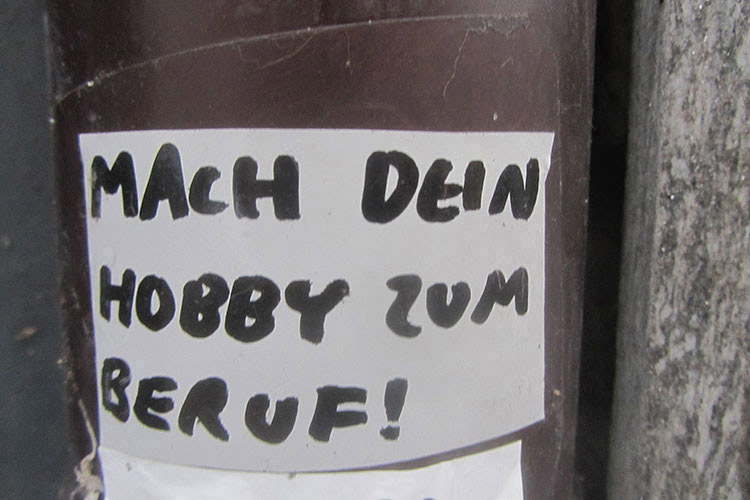 MACH DEIN
HOBBY ZUM
BERUF!